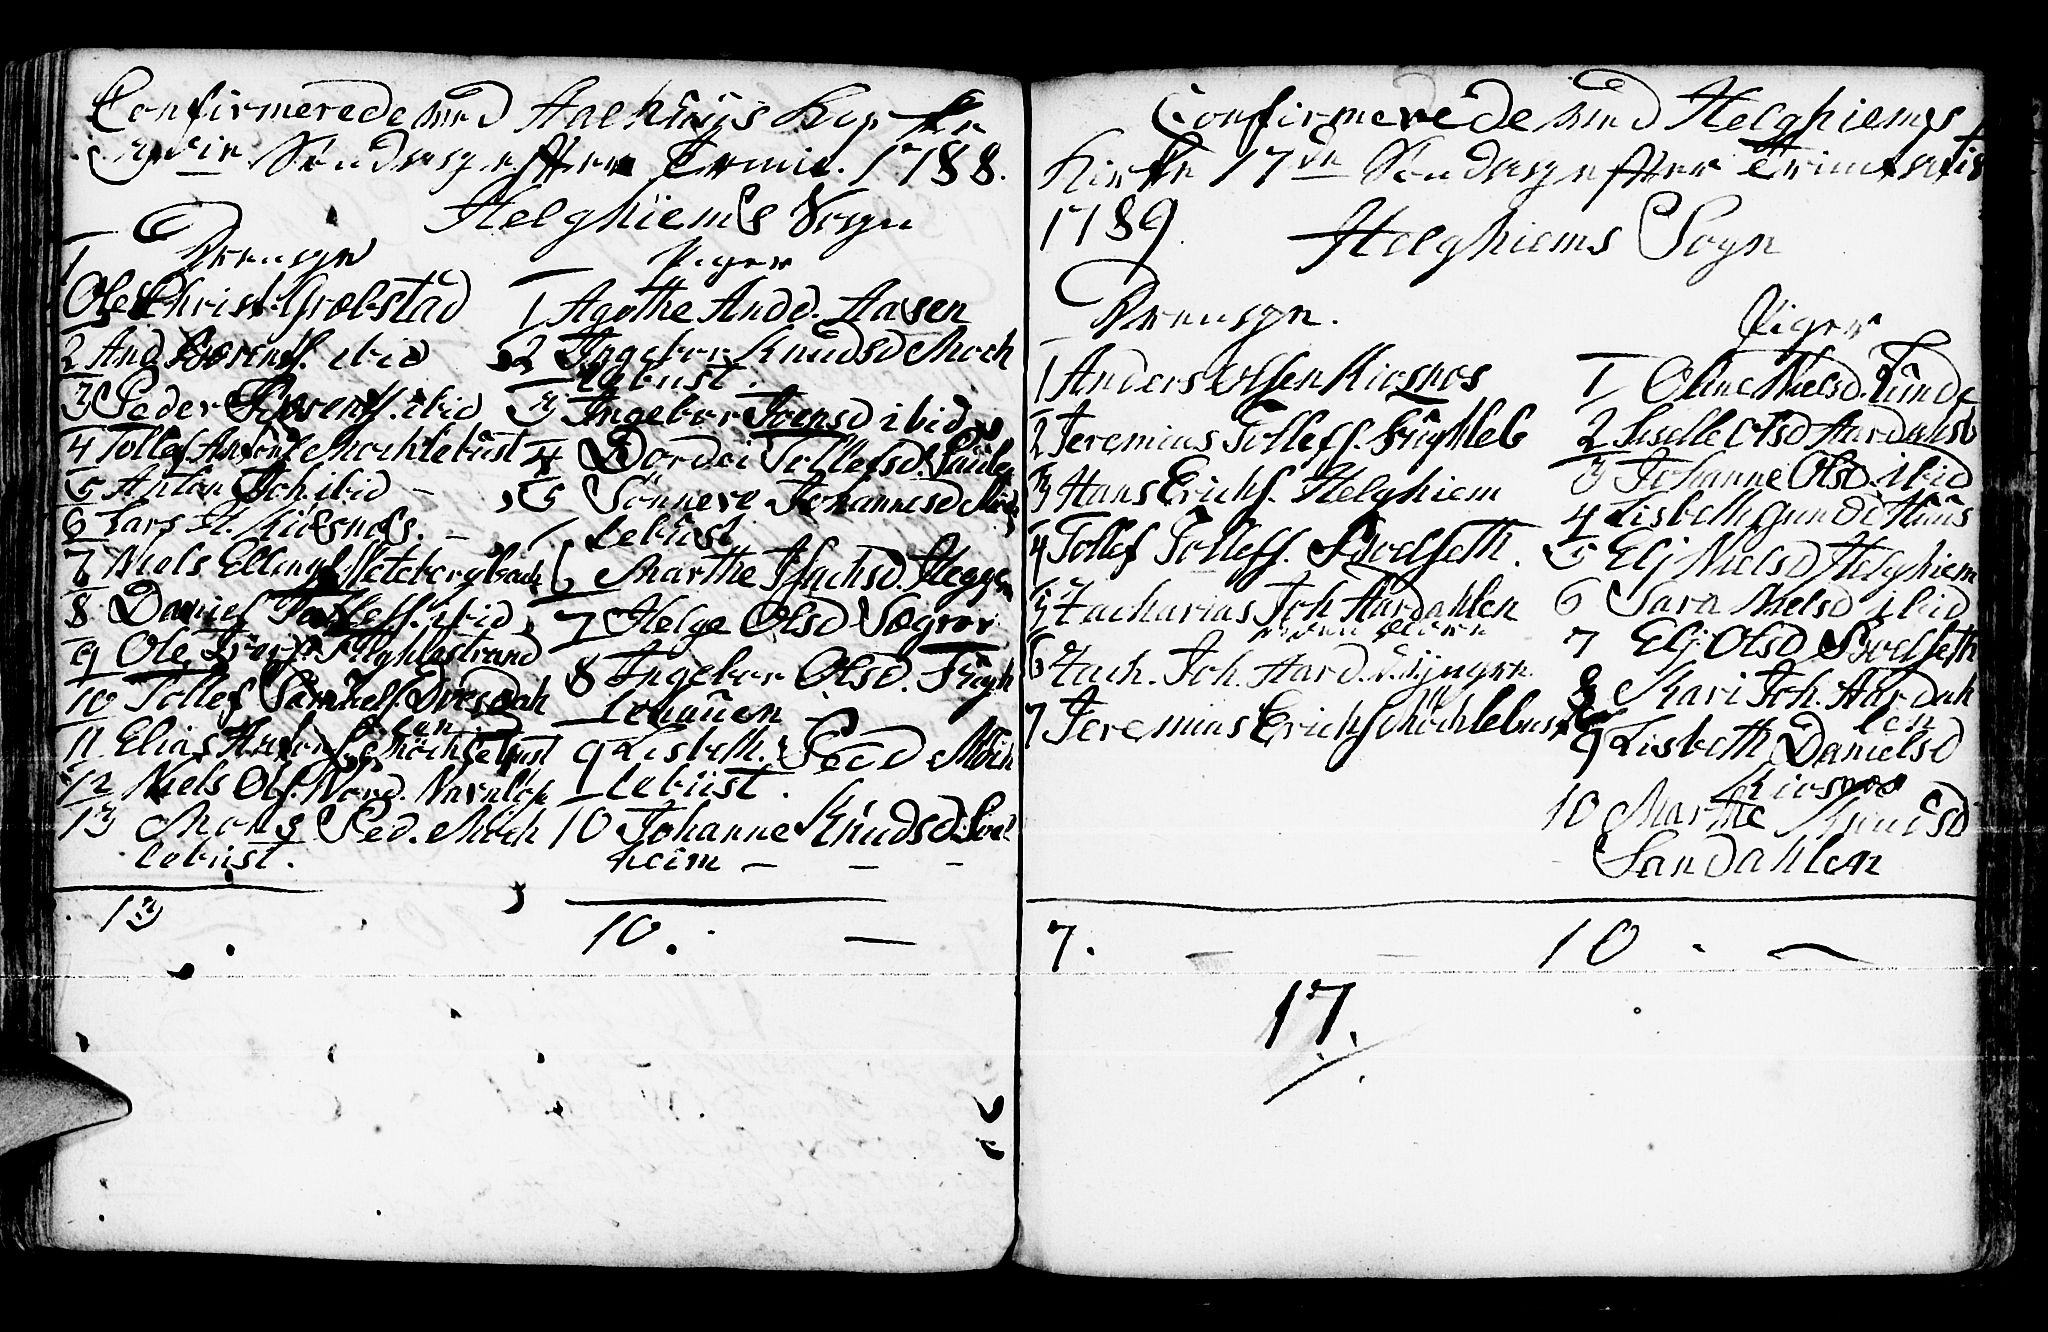 Confirmerede ved Aalhuus Kir ke
Søndag efter Trinit. 1788.
Helghiems Sogn
Drenge
1
Ole Christ. Grobstad
2 And. Sørens. ibid
3 Peder Sørens. ibid
4 Tollef Antons. Mochlebust
5 Anton Joh. ibid -
6 Lars H. Kiøsnæs. -
7 Niels Ellings.
8 Daniel Tollefs. ibid
9 Ole Fughlestrand
10 Tollef Samuels. Dvergdah
len
11 Elias Antons. Mochlebust
12 Niels Ols. Nord.
13 Mons Ped. Moch
lebust.
13
Piger
1 Agothe Andd. Aasen
2 Ingebor Knudsd Moch
lebust.
3 Ingebor Joensd ibid
4 Dordei Tollefsd.
5 Sønneve Johannesd Moch
lebust
6 Marthe Isachsd. Hegge
7 Helge Olsd Søgror
8 Ingebor Olsd. Fugh
lehauen
9 Lisbeth. Ped d Moch
lebust.
10 Johanne Knudsd
heim - - -
10. -
Confirmerede ved Helghiems
Kirke 17de Søndag efter Trinitatis
1789. Helghiems Sogn
Drenge.
1 Anders Olsen Kiosnos
2 Jeremias Tollefs. Fughleb
3 Hans Erichs. Helghiem
4 Tollef Tollefs. Svoelseth.
5 Zacharias Joh Aardahlen
6 Zach. Joh. Aard. d. yngre.
7 Jeremias Erichs Mochlebust
7. - -
Piger
1 Oline Nielsd. Sunde
2 Siselle Olsd Aardahl
3 Johanne Olsd. ibid
4 Lisbeth Huus
5 Eli Nielsd Helghiem
6 Sara Nielsd ibid
7 Eli Olsd Svoelseth
8 Kari Joh. Aardah
len
9 Lisbeth Danielsd
Kiosnos
10 Marthe Knudsd
Sandahlen
10 . -
17.